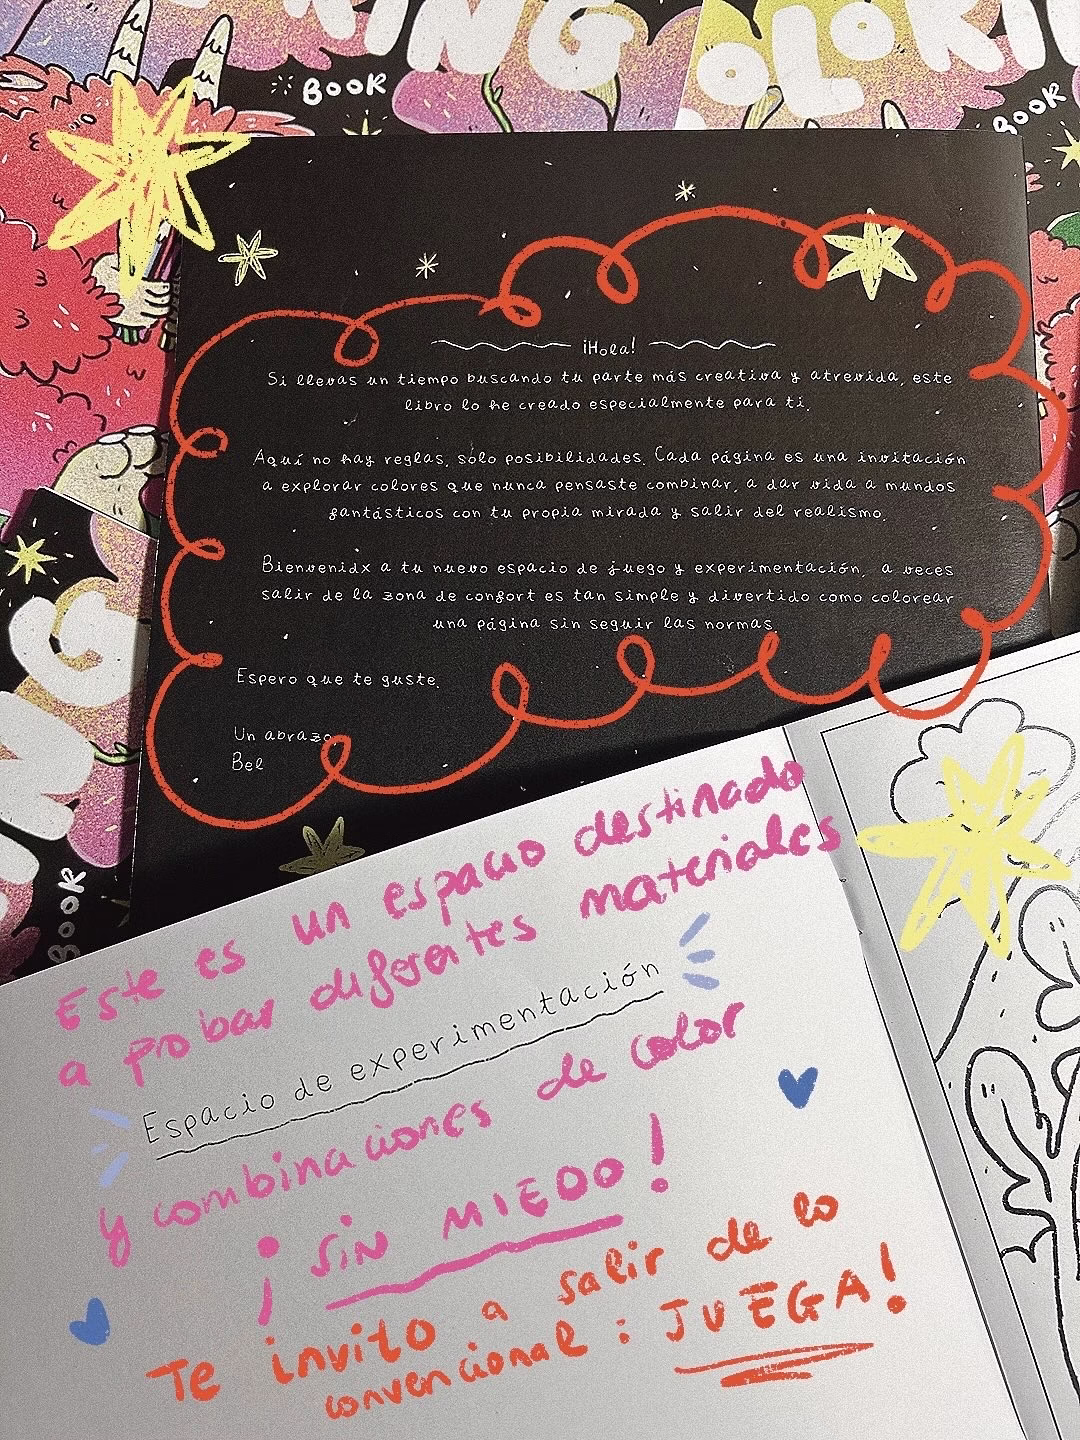 RING
COLORIN
BOOK
BOOK
¡Hola!
Si llevas un tiempo buscando tu parte más creativa y atrevida, este
libro lo he creado especialmente para ti.
Aquí no hay reglas, sólo posibilidades. Cada página es una invitación
a explorar colores que nunca pensaste combinar, a dar vida a mundos
fantásticos con tu propia mirada y salir del realismo.
Bienvenidx a tu nuevo espacio de juego y experimentación, a veces
salir de la zona de confort es tan simple y divertido como colorear
una página sin seguir las normas.
Espero que te guste.
Un abrazo
Bel
NG
BOOK
Este es un espacio destinado
a probar diferentes materiales
Espacio de experimentación
y combinaciones de color
¡SIN MIEDO!
Te invito a salir de lo
convencional: JUEGA!